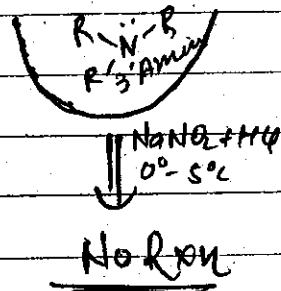 R N̈ R
R' 3° Amine
NaNO2 + HCl
0° - 5°C
No Rxn